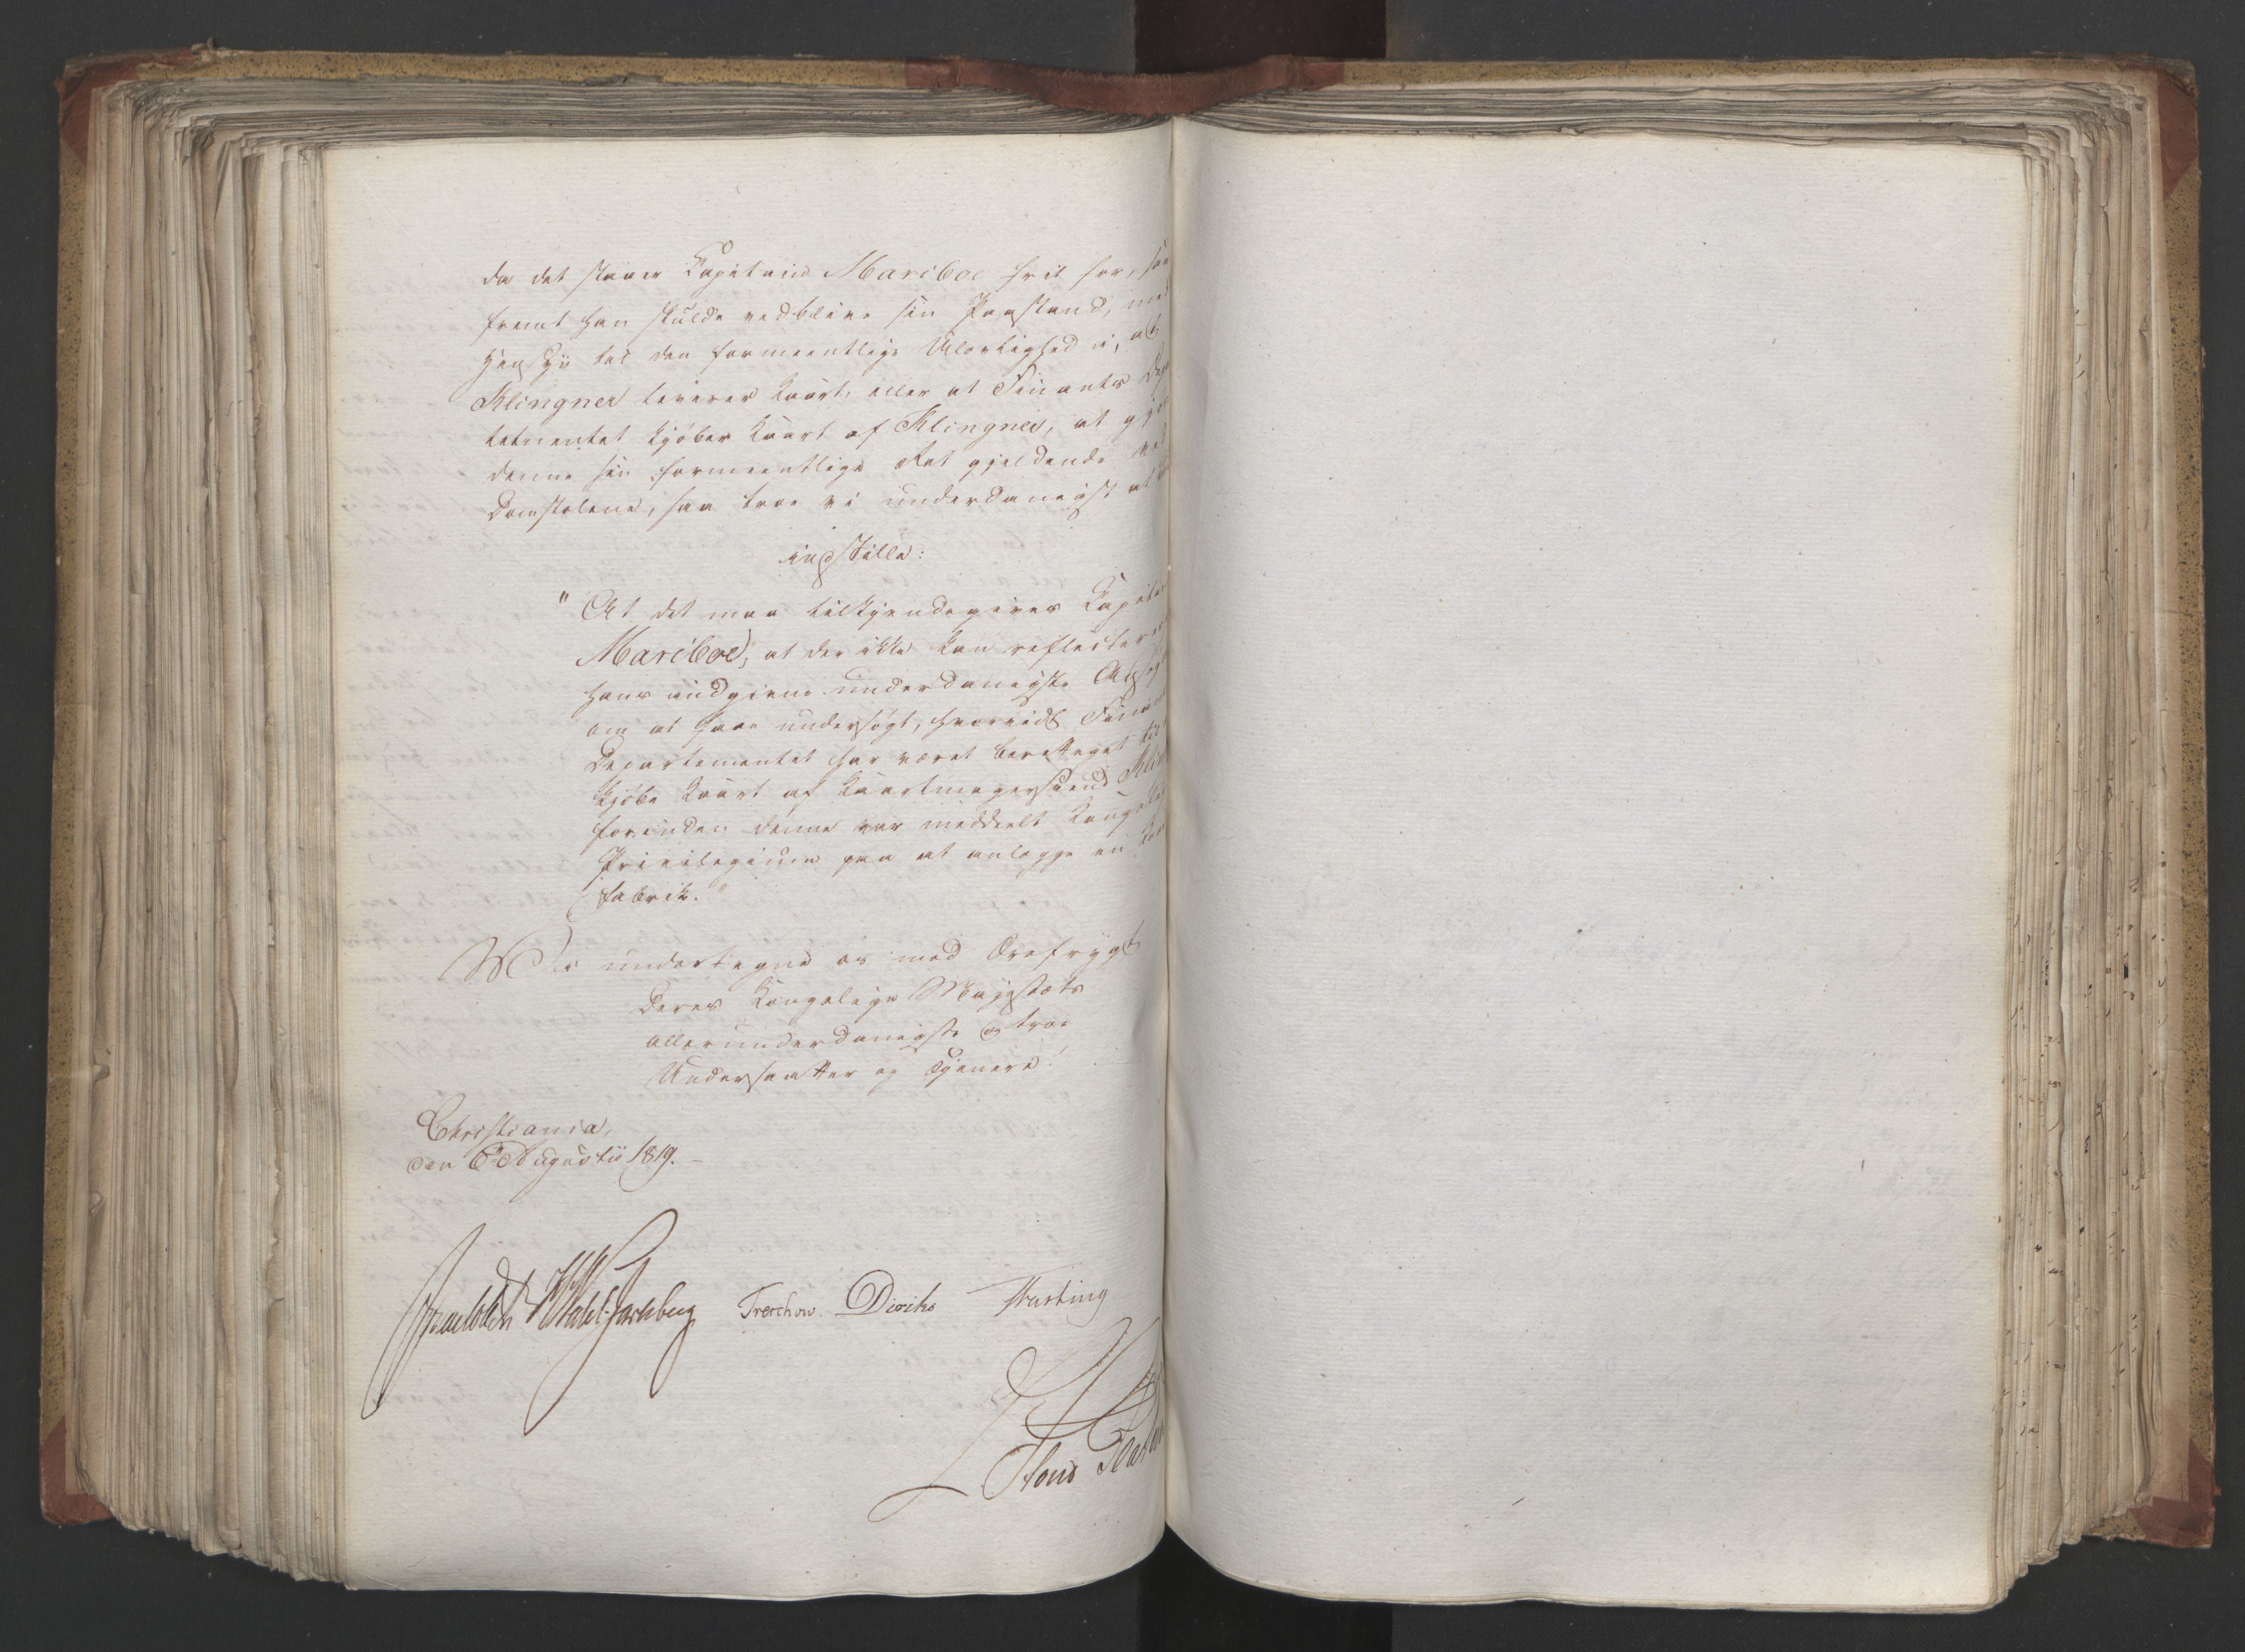 da det staaer Capitain Mariboe frit for, saa
fremt han skulde vedblive sin Paastand, med
Hensyn til den formeentlige Ulovlighed i, at
Klingner leverer Kaart, eller at Finants Depar
tementet kjøber Kaart af Klingner, at gjøre
denne sin formeentlige Ret gjeldende ved
Domstolene, saa troe vi underdanigst at
indstille:
"At det maa tilkjendegives Capitain
Mariboe, at der ikke kan reflecteres
hans indgivne underdanigste Ansøgn
om at faae undersøgt, hvorvidt Finants
Departementet har været berettiget til
kjøbe Kaart af Kaartmagersvend Kling
forinden denne var meddeelt Kongelig
Privilegium paa at anlægge en Kaart
fabrik."
Vi undertegne os med Ærefrygt
Deres Kongelige Majestæts
allerunderdanigste og troe
Undersaatter og Tjenere!
Christiania,
den 6 Augustii 1819. –
Wedel-Jarlsberg Treschow. Diriks Fasting
Hans